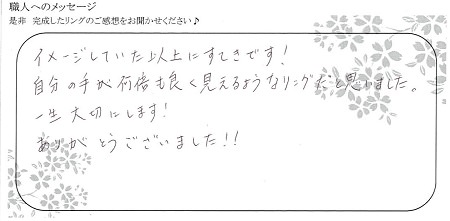 職人へのメッセージ
是非 完成したリングのご感想をお聞かせください♪
イメージしていた以上にすてきです!
自分の手が何倍も良く見えるようなリングだと思いました。
一生大切にします!
ありがとうございました!!